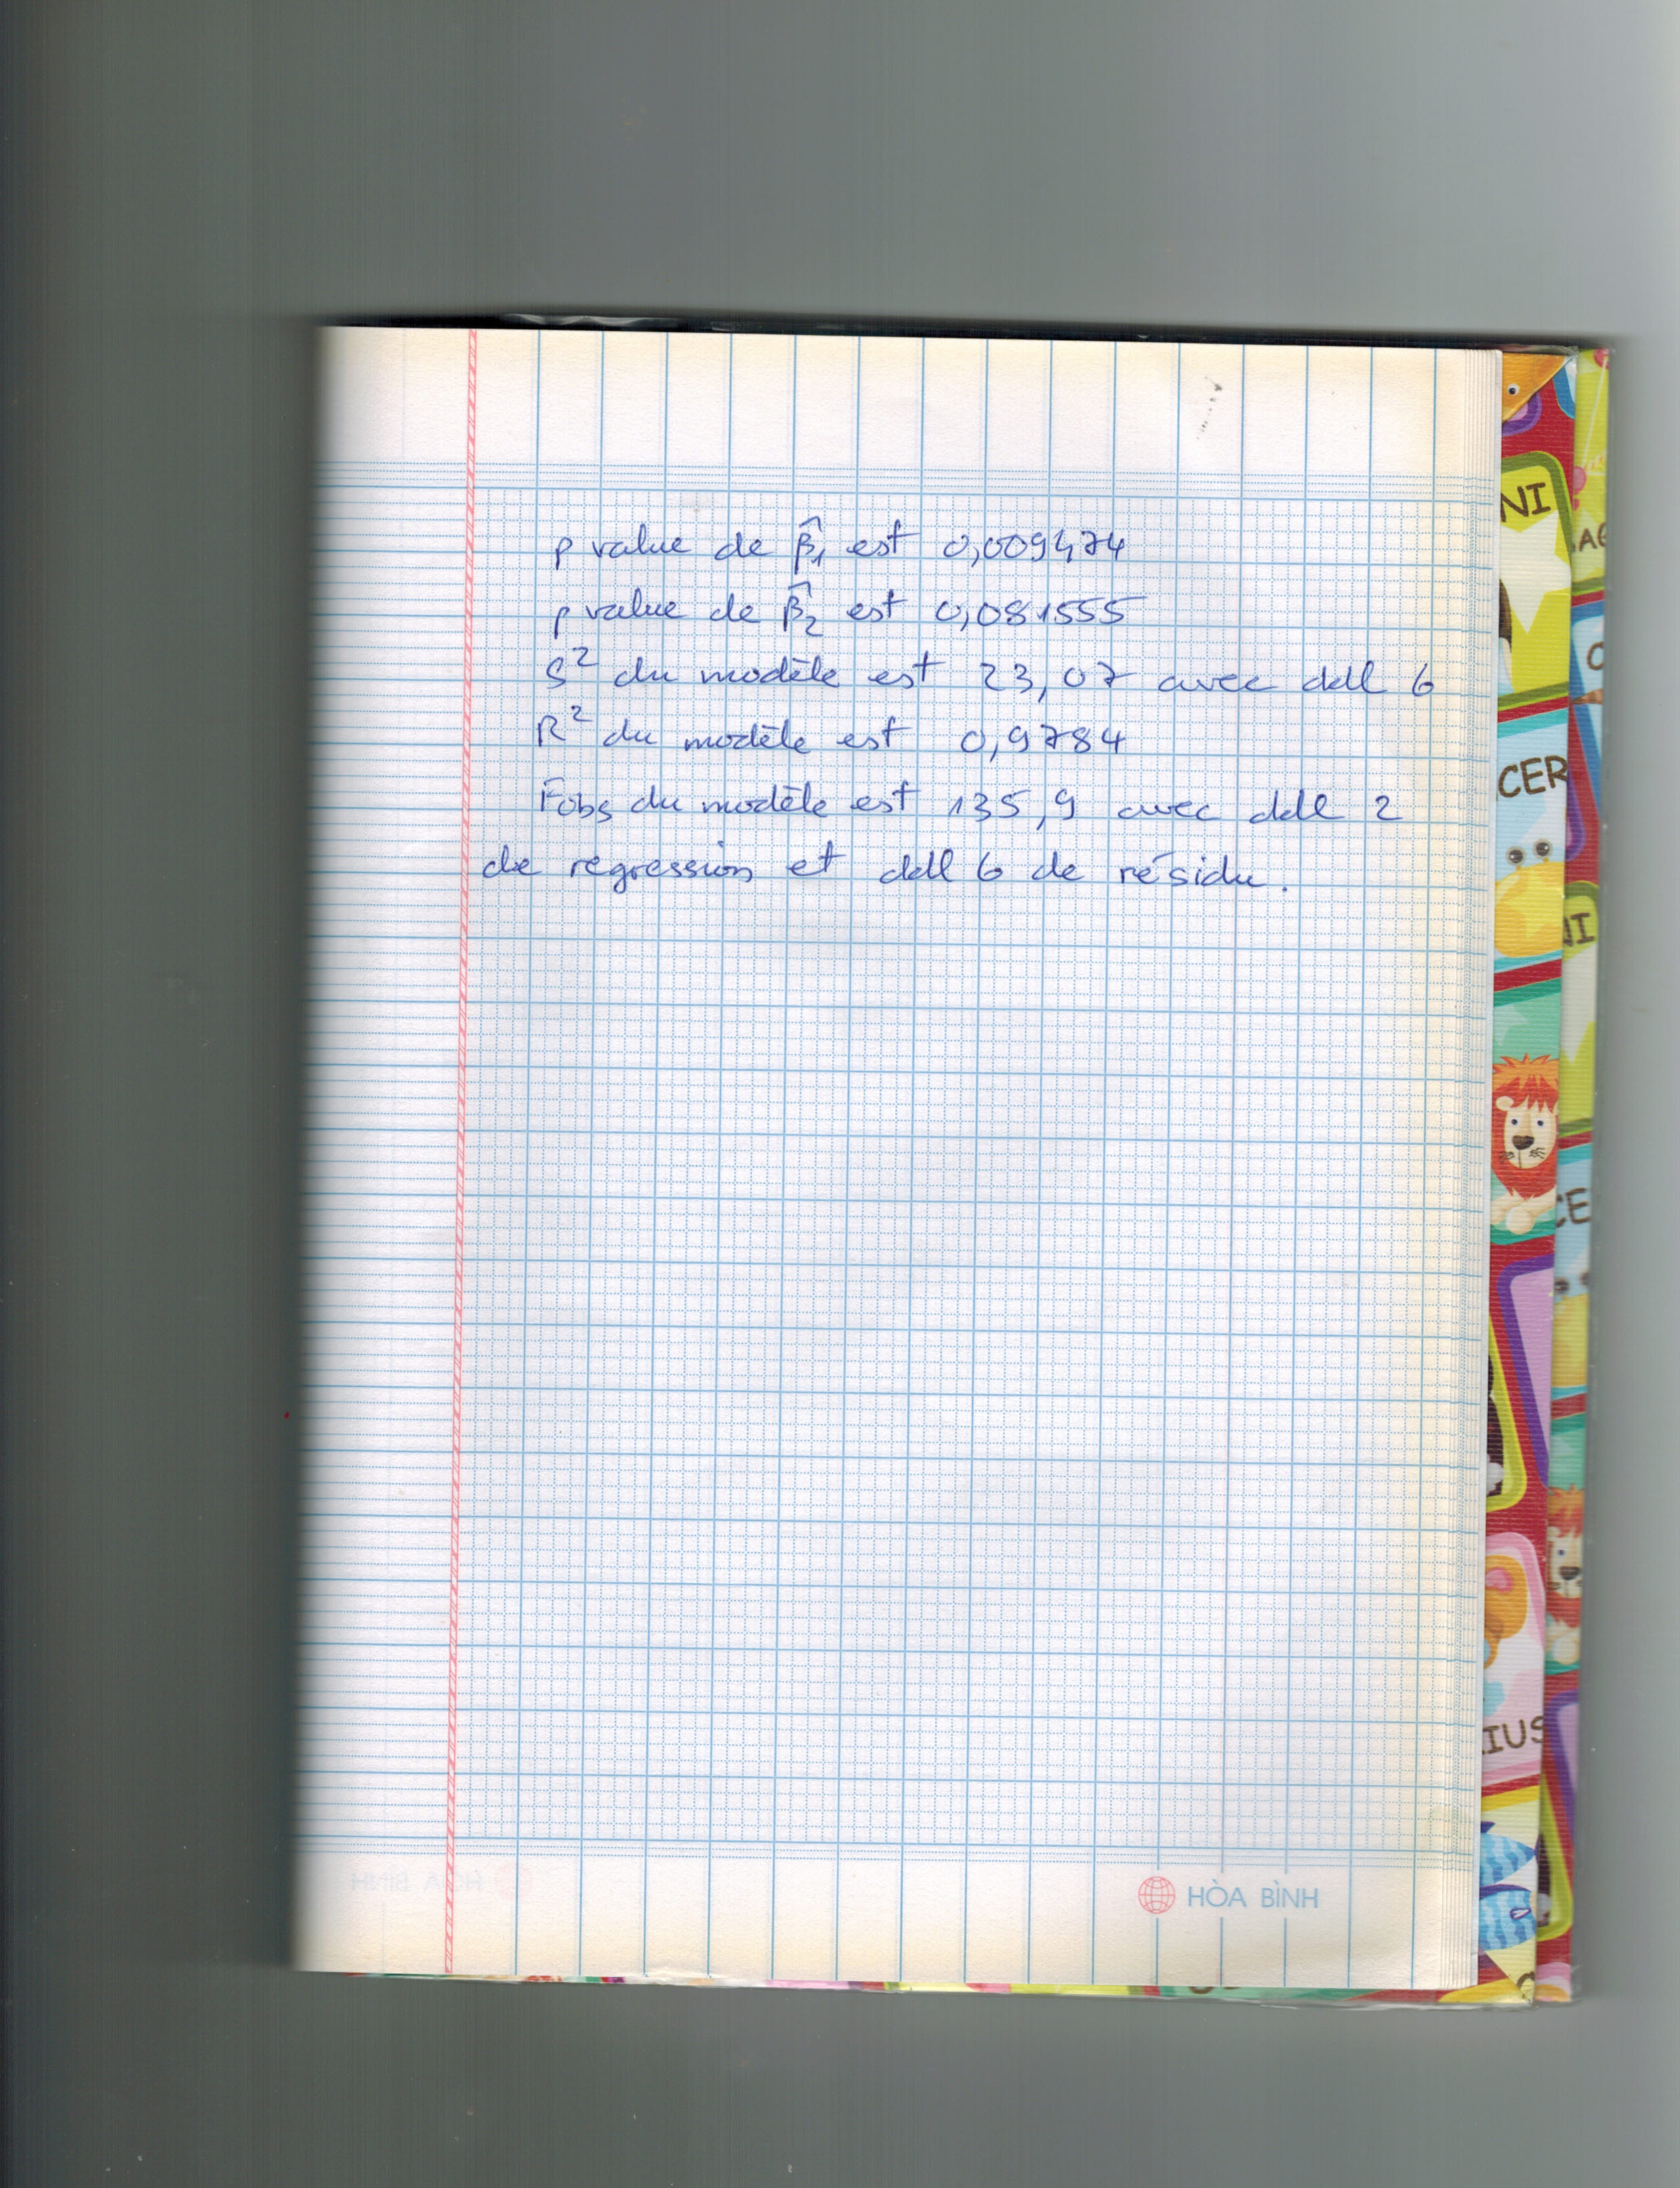 p value de β̂₁ est 0,009474
p value de β̂₂ est 0,081555
S² du modèle est 23,07 avec ddl 6
R² du modèle est 0,9784
Fobs du modèle est 135,9 avec ddl 2
de regression et ddl 6 de résidu.
HÒA BÌNH
NI
AG
CER
NI
CE
IUS